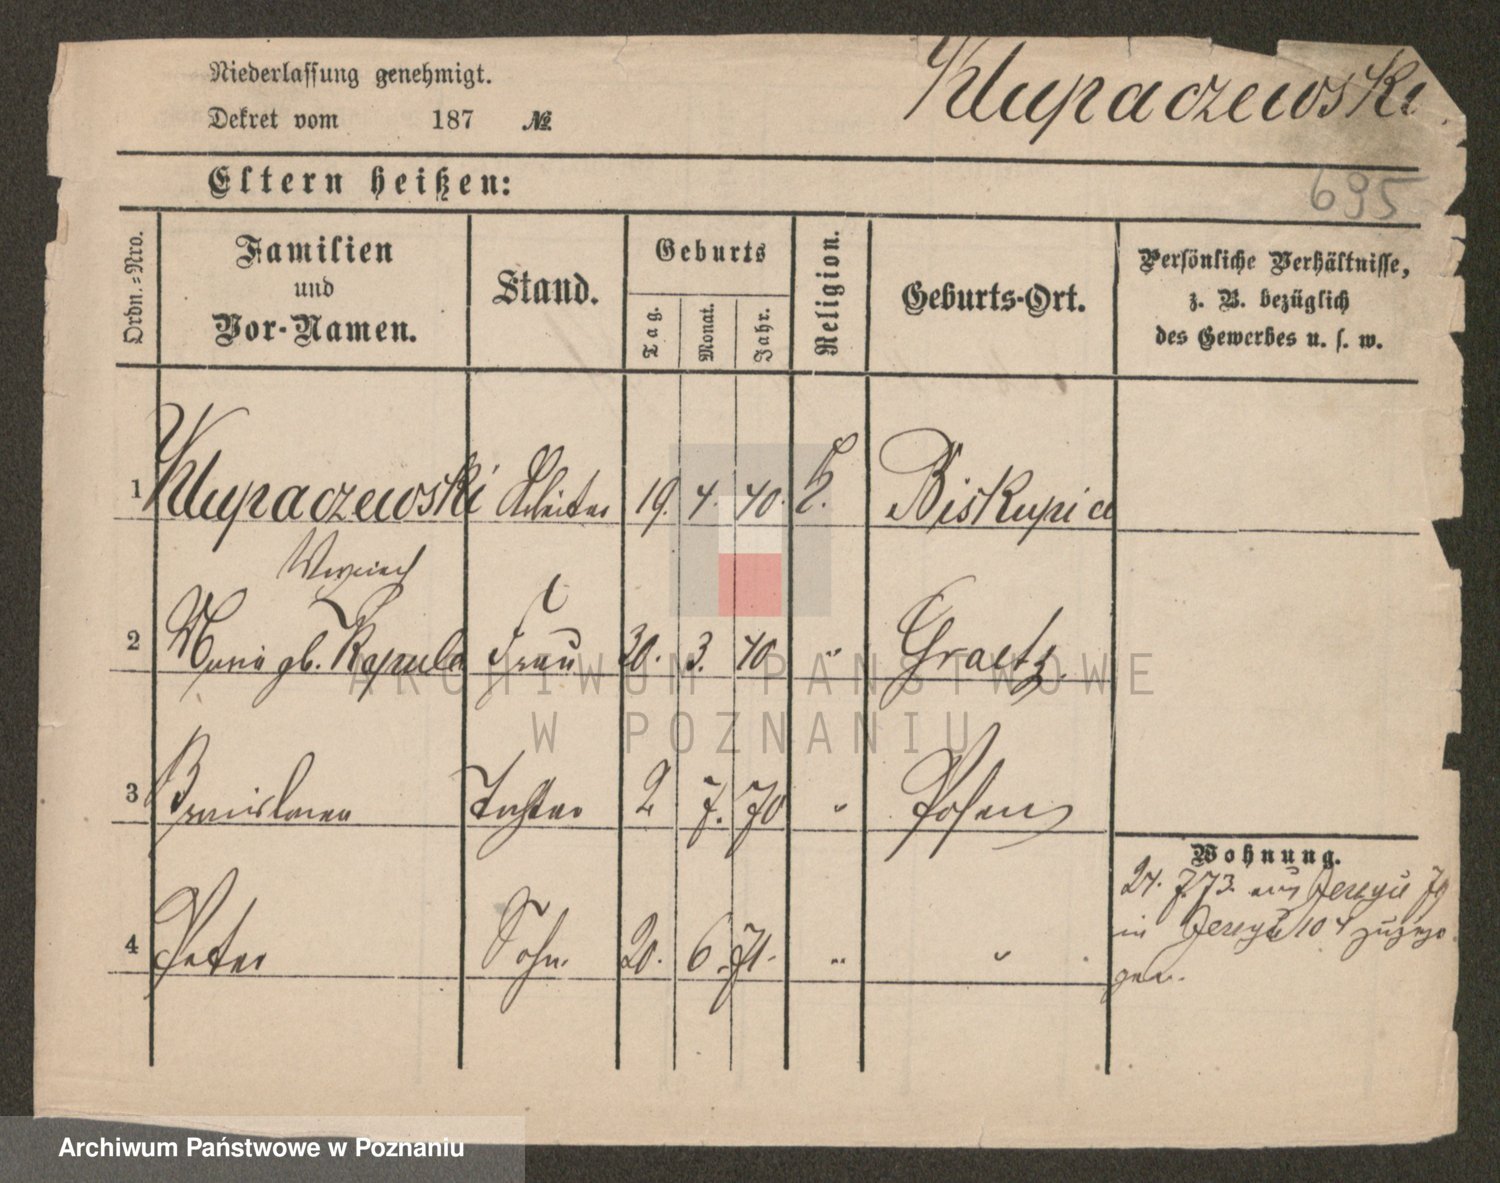 Niederlassung genehmigt.
Klupaczewski.
Dekret vom 187 №
Eltern heißen:
695
Ordn.-Nro.
Familien
und
Vor-Namen.
Stand.
Geburts
Tag.
Monat.
Jahr.
Religion.
Geburts-Ort.
Persönliche Verhältnisse,
z. B. bezüglich
des Gewerbes u. s. w.
1 Klupaczewski Arbeiter 19. 4. 40. k. Biskupice
2 Maria gb. Kapula Frau 30. 3. 40. " Graetz.
3 Bronislawa Tochter 2 7. 70 " Posen
4 Peter Sohn. 20. 6. 71. " "
Wohnung.
24. 7. 73. aus Jerzyce
in Jerzyce 104 zugezo
gen.
ARCHIWUM PAŃSTWOWE
W POZNANIU
Archiwum Państwowe w Poznaniu